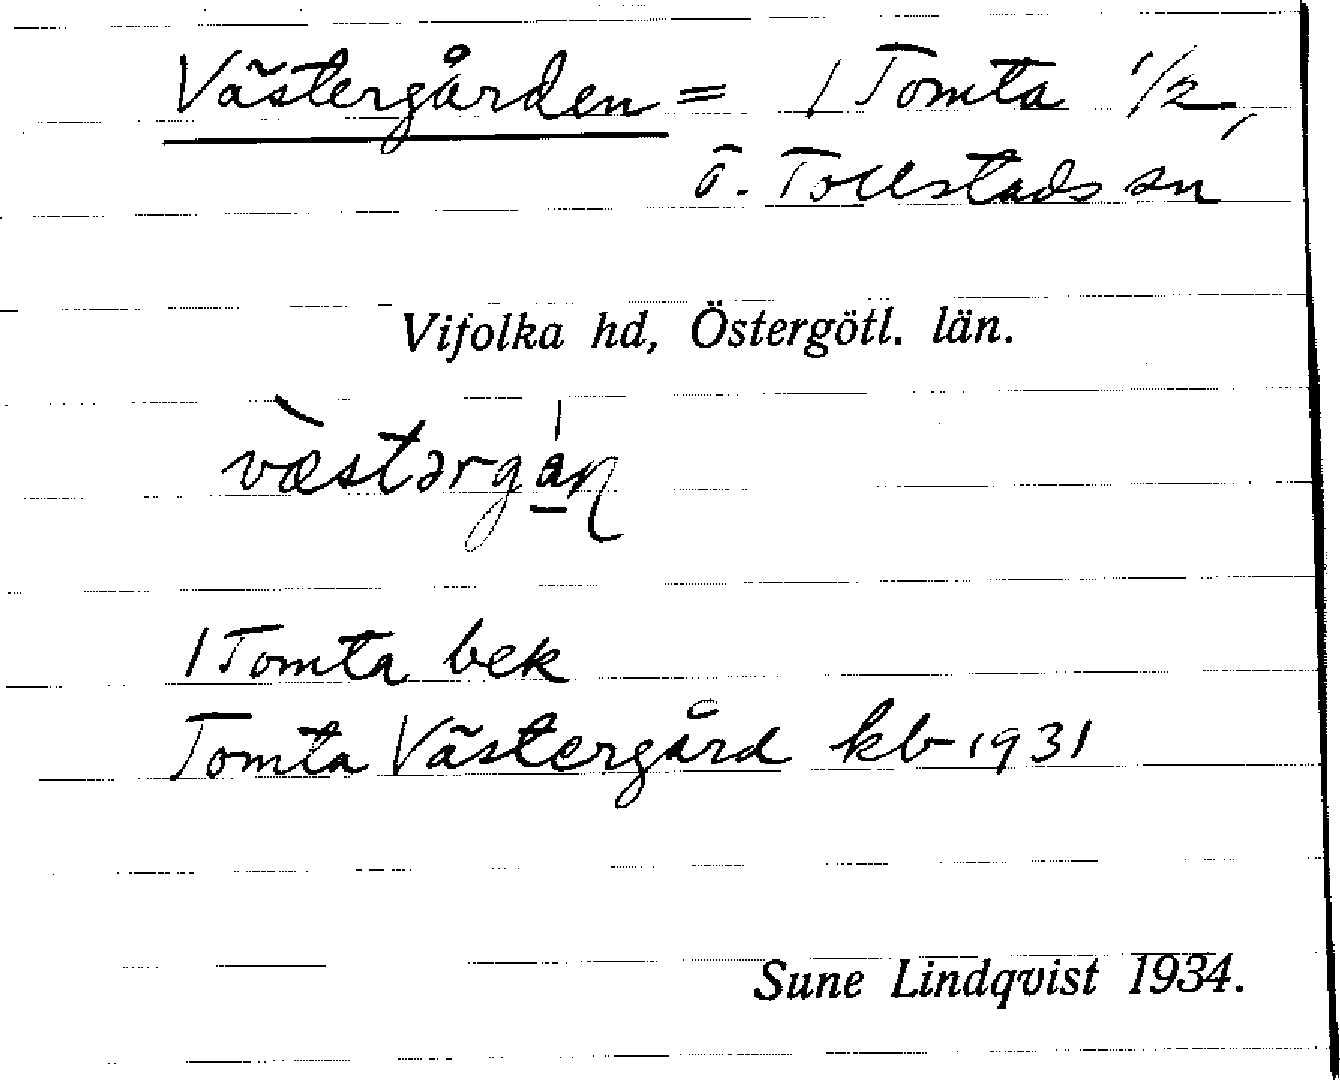 Västergården = / Tomta 1/2,
Ö. Tollstads sn
Vifolka hd, Östergötl. län.
væ̀stərgá̱ɳ
/ Tomta bek
Tomta Västergård kb 1931
Sune Lindqvist 1934.